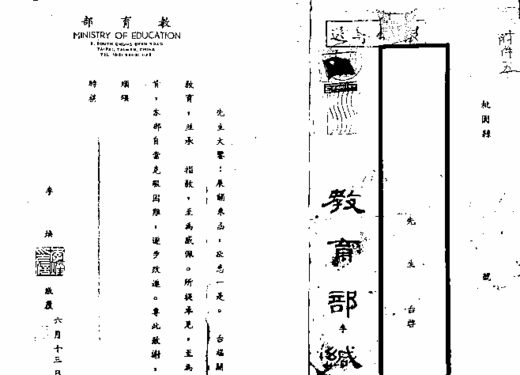 教育部
MINISTRY OF EDUCATION
TAIPEI, TAIWAN, CHINA
先生大鑒：展誦來函，欣悉一是。台端關
教育，並承 指教，至為感佩。所提卓見，至為
育，本部自當克服困難，逐步改進。專此敬謝，
順頌
時祺
李
煥
敬覆
六月十三日
附件五
桃園縣
號
先生台啓
教育部緘
李